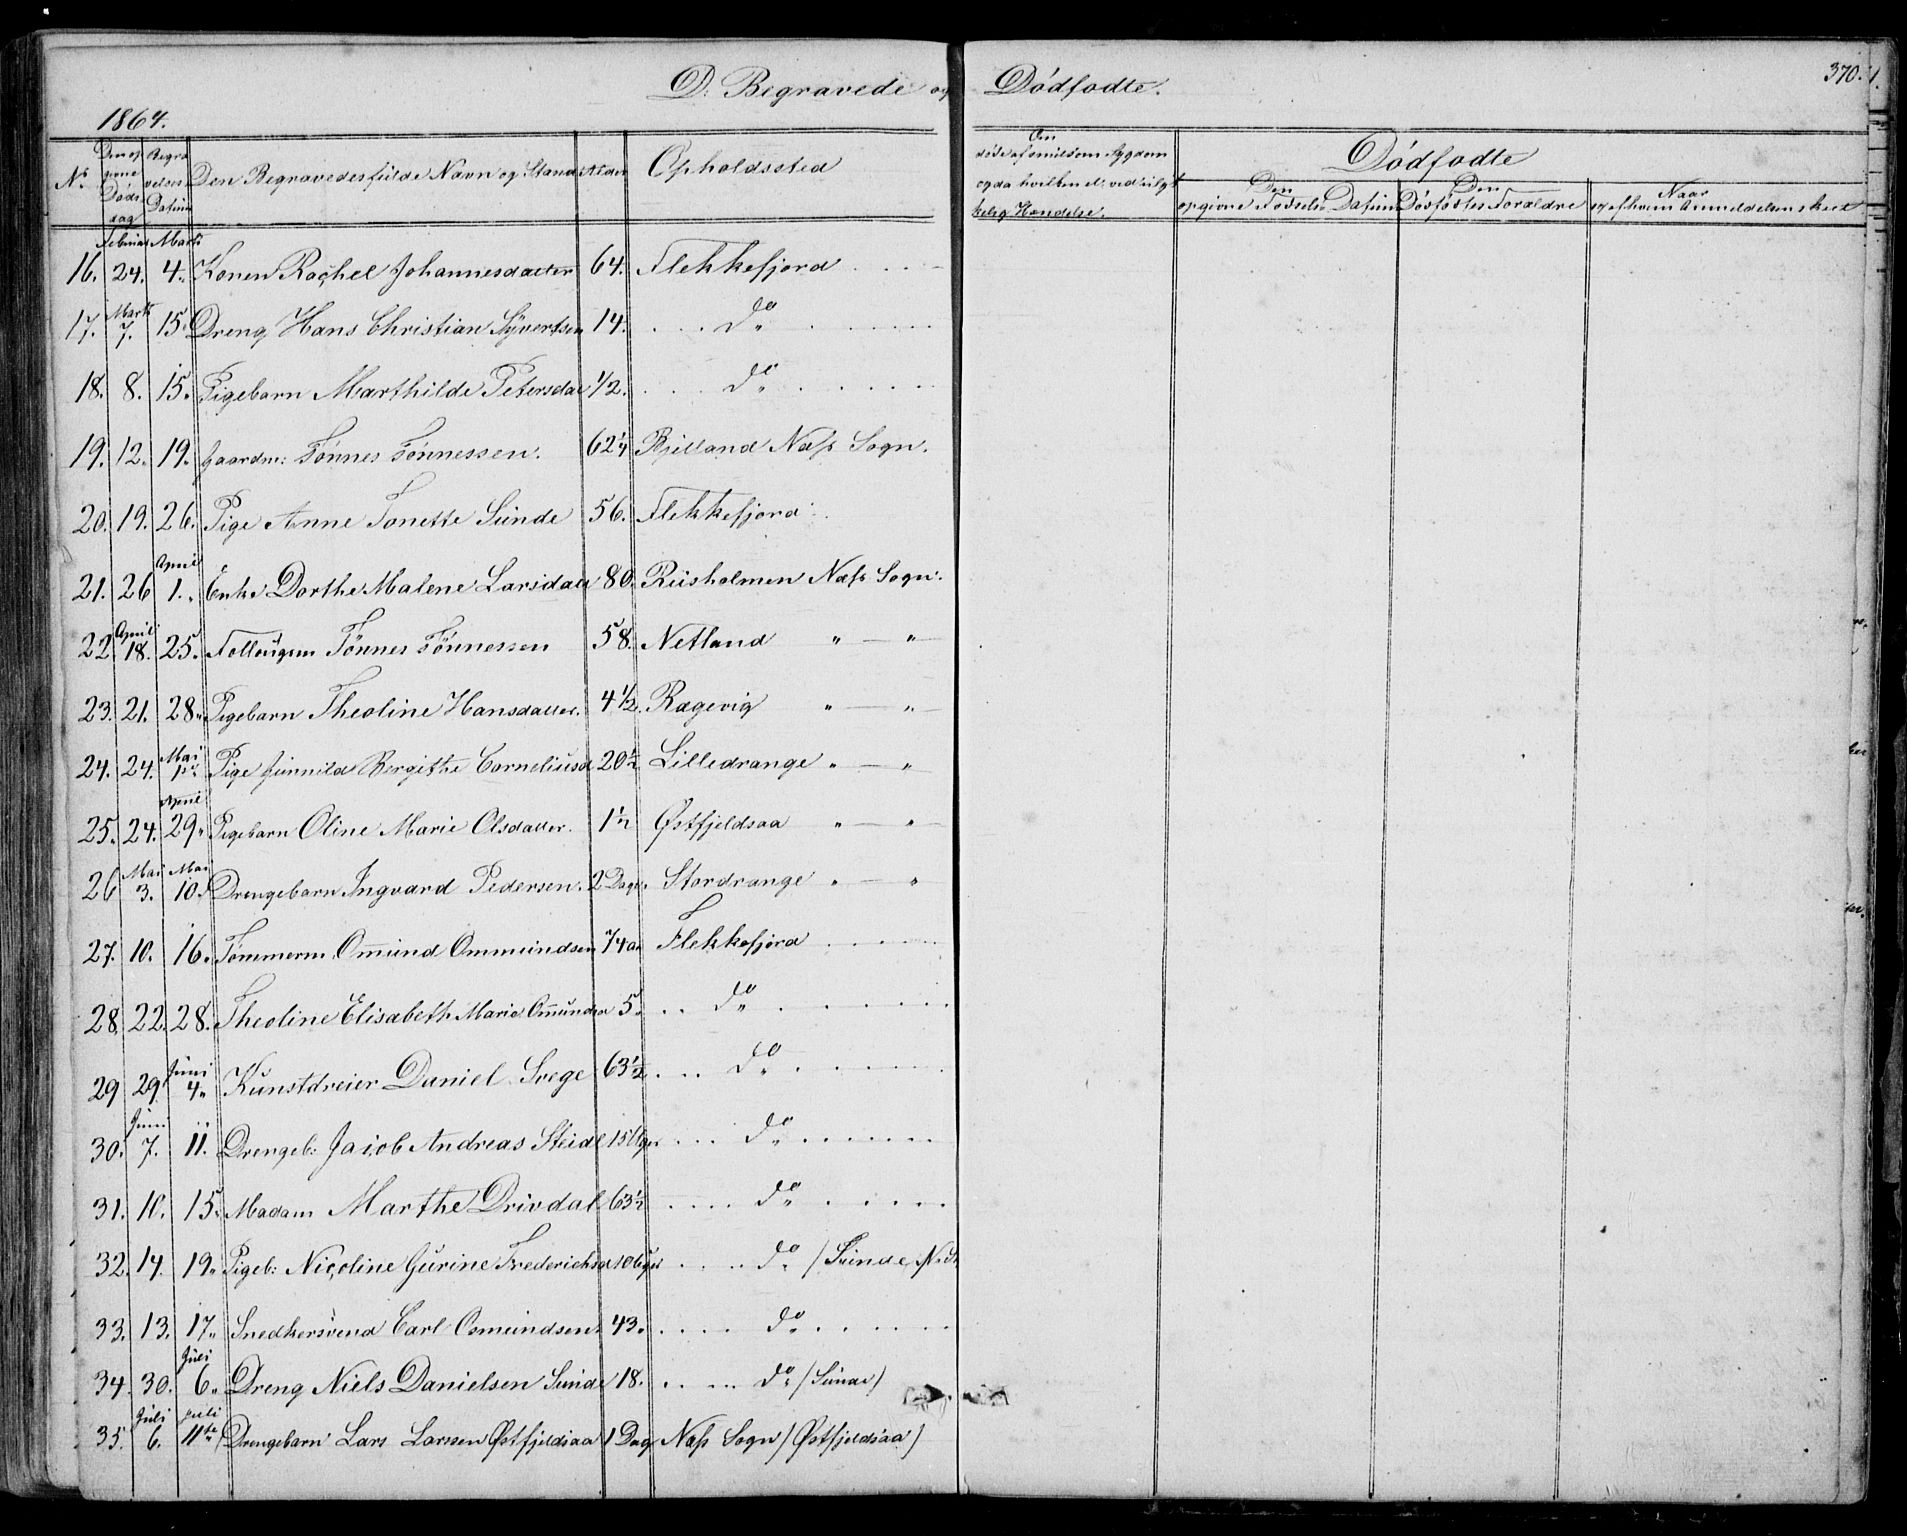 D. Begravede og Dódfødte.
370.
1864.
No
Den opgivne Dødsdag
Begravelses Datum
Den Begravedes fulde Navn og Stand
Alder
Opholdssted
Om
døde af smitsom Sygdom
og da hvilken el. ved ulyk
kelig Hændelse.
Dódfødte
Den
opgivne Fødsels Datum
Den
Dødfødtes Forældre
Naar
og af hvem Anmeldelsen skeet
Februar Marts
16. 24. 4. Konen Rachel Johannesdatter 64. Flekkefjord
Marts
17. 7. 15. Dreng Hans Christian Syvertsen 14. do
18. 8. 15. Pigebarn Marthilde Petersdat 1/2. do
19. 12. 19. Gaardm: Tónnes Tónnessen. 62 1/4 Bjelland Næs Sogn.
20. 19. 26. Pige Anne Tonette Sunde 56. Flekkefjord
April
21. 26 1. Enke Dorthe Malene Larsdatr 80. Riisholmen Næs Sogn.
April
22 18. 25. Tónnes Tónnessen 58. Netland " — "
23. 21. 28. Pigebarn Theoline Hansdatter. 4 1/2. Rægevig " — "
Mai
24. 24. 1. Pige Gunnild Bergithe Corneliusd 20 1/2 Lilledrange " — "
April
25. 24. 29. Pigebarn Oline Marie Olsdatter. 1 1/2 Østfjeldsaa " — "
Mai Mai
26 3. 10. Drengebarn Ingvard Pedersen. 2 Dage. Stordrange " — "
27. 10. 16. Tømmerm. Omund Ommundsen 74 a. Flekkefjord
28. 22. 28. Theoline Elisabeth Marie Omunds 5. do
Juni
29 29. 4. Kunstdreier Daniel Svege 63 1/2 do
Juni
30. 7. 11. Drengeb: Jacob Andreas Steidl 15 Uger do
31. 10. 15. Madam Marthe Drivdal 63 1/2 do
32. 14. 19. Pigeb: Nicoline Gurine Frederichsd 10 Uger do / Sunde
33. 13. 17. Snedkersvend Carl Osmundsen 43. do
Juli
34. 30. 6. Dreng Niels Danielsen Sunde 18. do / Sunde /
Juli Juli
35. 6. 11te Drengebarn Lars Larssen Østfjeldsaa 1 Dag Næs Sogn / Østfjeldsaa /